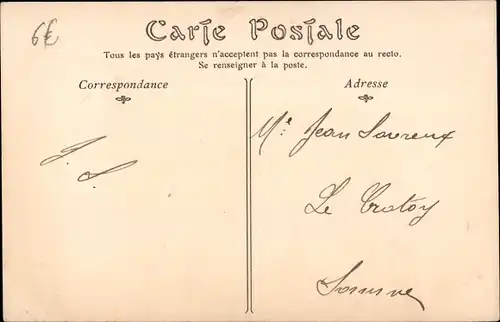 6€
Carte Postale
Tous les pays étrangers n'acceptent pas la correspondance au recto.
Se renseigner à la poste.
Correspondance
Adresse
Mr. Jean
Le Crotoy
Somme